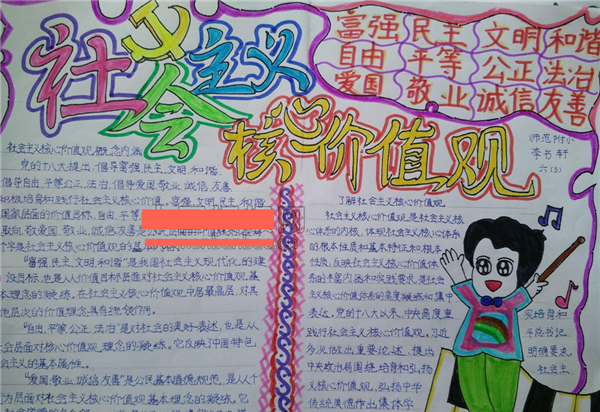 社会主义
核心价值观
富强 民主 文明 和谐
自由 平等 公正 法治
爱国 敬业 诚信 友善
师范附小
李书轩
六(3)
社会主义核心价值观概念内涵
党的十八大提出,倡导富强、民主、文明、和谐,
倡导自由、平等、公正、法治,倡导爱国、敬业、诚信、友善,
积极培育和践行社会主义核心价值。富强、文明、民主、和谐
国家层面的价值目标,自由、平等
取向,敬爱国、敬业、诚信、友善是
个字是社会主义核心价值观的基
“富强、民主、文明、和谐”是我国社会主义现代化的建
设目标,也是从价值目标层面对社会主义核心价值观基
本理念的凝练,在社会主义核心价值观中居最高层,对其
他层次的价值理念具有统领作用。
“自由、平等、公正、法治”是对社会的美好表述,也是从
会层面对核心价值观理念的凝练。它反映了中国特色
会主义的基本属性。
“爱国、敬业、诚信、友善”是公民基本道德规范,是从个
为层面对社会主义核心价值观基本理念的凝练。它
了解社会主义核心价值观
社会主义核心价值观是社会主义核
心体系的内核,体现社会主义核心价值体系
的根本性质和基本特征和根本
性质,反映社会主义核心价值体
系的丰富内涵和实践要求,是社会主
义核心价值体系的高度凝练和集中
表达。党的十八大以来,中央高度重
视践行社会主义核心价值观。习近
多次做出重要论述、提出
中央政治局围绕培育和弘扬
义核心价值观、弘扬中华
传统美德作出集体学
实培育和
平总书记
明确要求
社会主